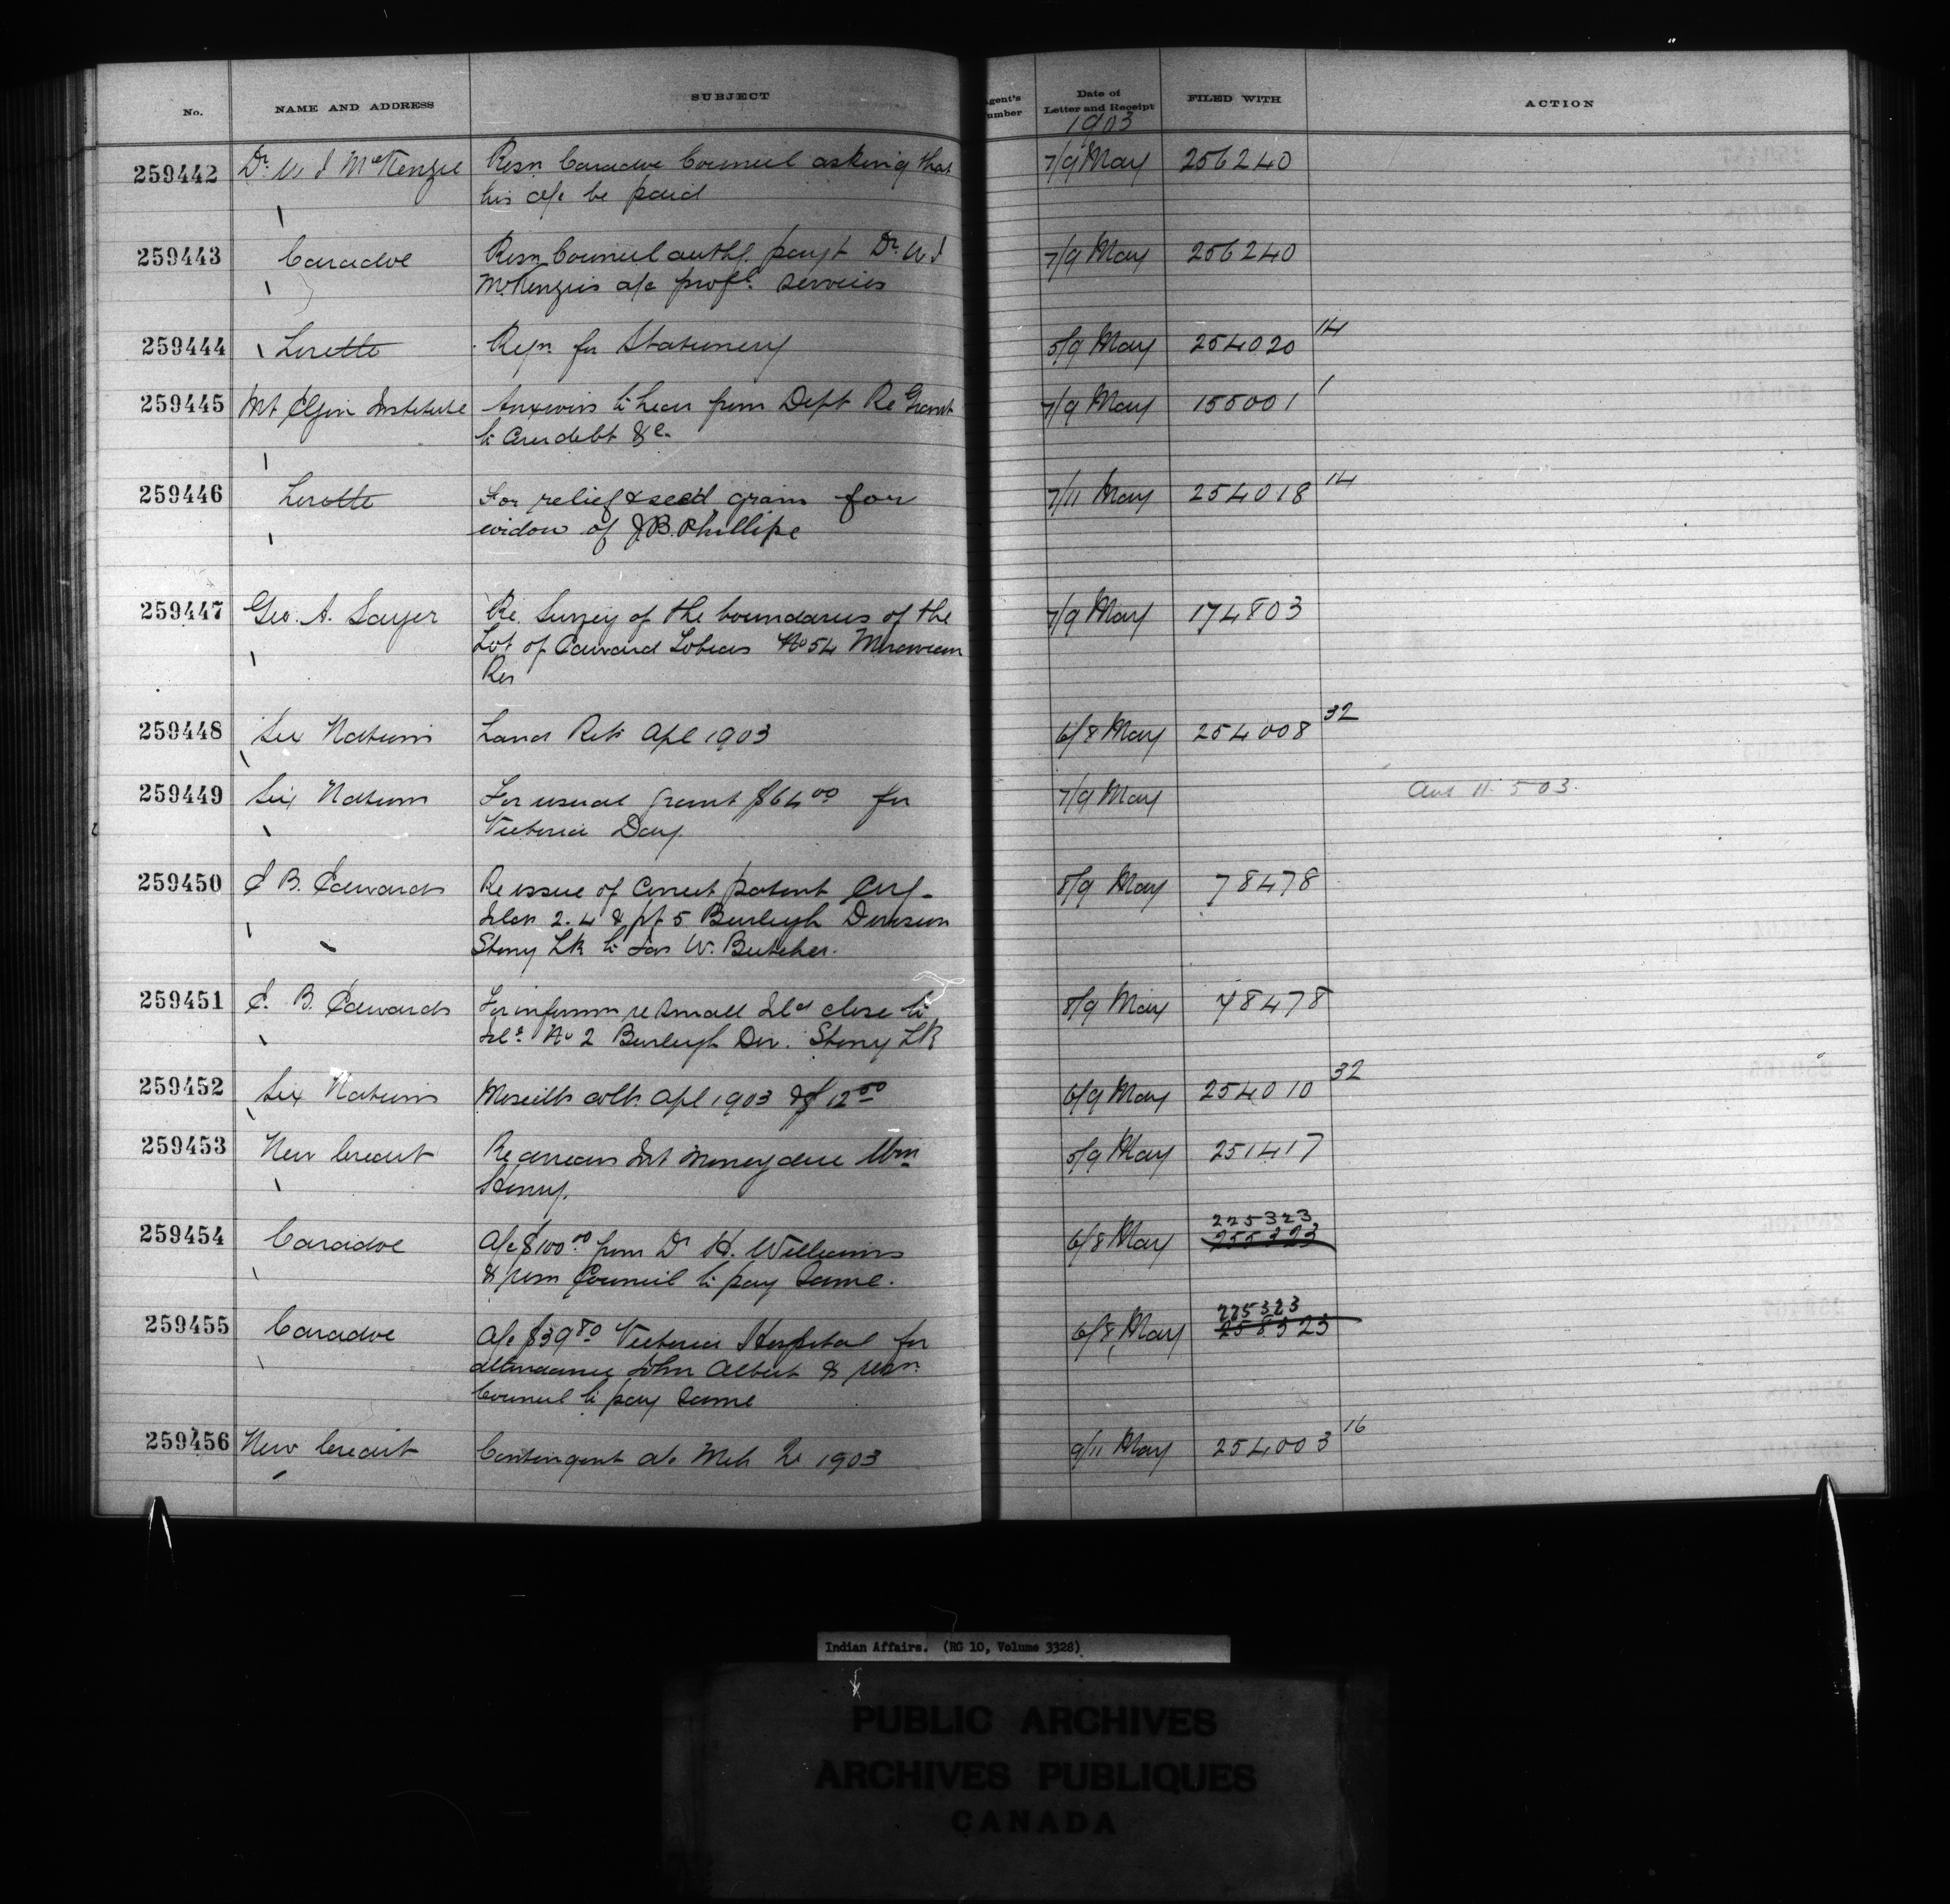 No. NAME AND ADDRESS SUBJECT Agent's Number Date of Letter and Receipt FILED WITH ACTION
1903
259442 Dr. W J McKenzie Resn Caradoc Council asking that 7/9 May 256240
his a/c be paid
259443 Caradoc Resn Council auth. payt Dr. W J 7/9 May 256240
McKenzies a/c profl. services
259444 Lorette Reqn. for Stationery 5/9 May 254020 14
259445 Mt Elgin Institute Anxious to hear from Dept Re Grant 7/9 May 155001 1
to debt &c.
259446 Lorette For relief & seed grain for 7/11 May 254018 14
widow of J.B. Phillipe
259447 Geo. A. Sayer Re. Survey of the boundaries of the 7/9 May 174803
Lot of Edward Tobias No 54 Moravian
Res
259448 Six Nations Land Retn Apl 1903 6/8 May 254008 32
259449 Six Nations For usual grant $64.00 for 7/9 May Ans 11.5 03.
Victoria Day.
259450 E B. Edwards Re issue of Correct patent 8/9 May 78478
2. 4 & pt 5 Burleigh Division
Stony LK to Jas W. Butcher.
259451 E. B. Edwards For inform re small Isld close to 8/9 May 78478
Isld No 2 Burleigh Div. Stony LK
259452 Six Nations Apl 1903 $12.50 6/9 May 254010 32
259453 New Credit Re arrears Int Money due Wm 5/9 May 251417
Henry.
259454 Caradoc A/c $100.00 from Dr H. Williams 6/8 May 225323
& resn Council to pay same.
259455 Caradoc A/c $39.80 Victoria Hospital for 6/8 May 225323
attendance John Albert & resn
Council to pay same
259456 New Credit Contingent a/c Mch 1903 9/11 May 254003 16
Indian Affairs. (RG 10, Volume 3328)
PUBLIC ARCHIVES
ARCHIVES PUBLIQUES
CANADA